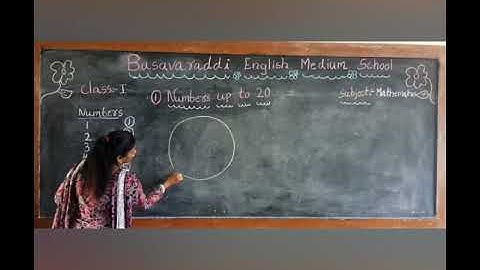 Basavaraddi English Medium School
Class:- I
① Numbers up to 20 =
Subject:- Mathematics
Numbers
1
2
3
①